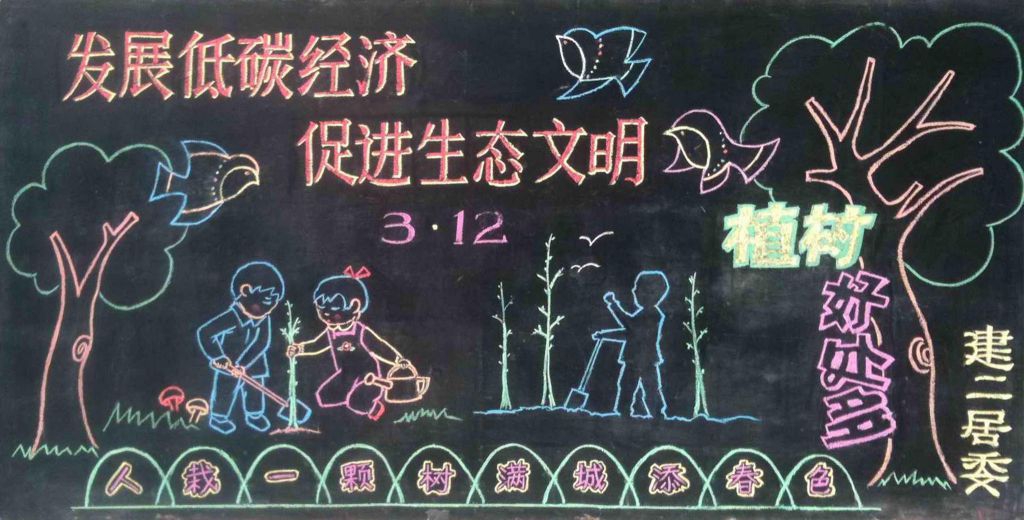 发展低碳经济
促进生态文明
3·12
植树
好处多
建二居委
人栽一颗树满城添春色